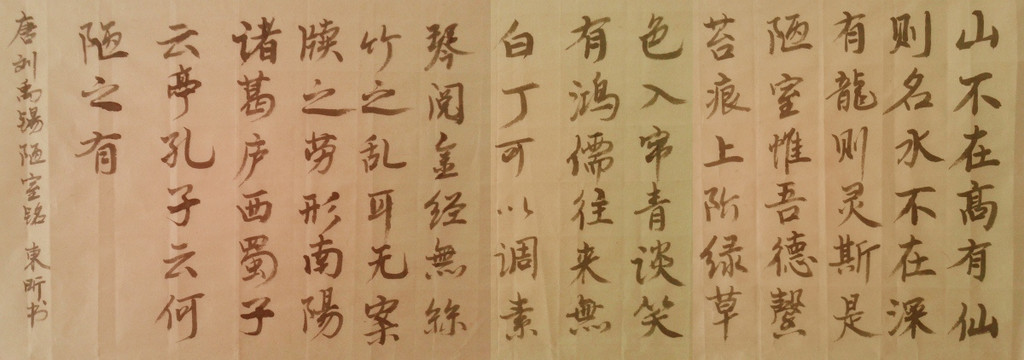 山不在髙有仙
则名水不在深
有龍则灵斯是
陋室惟吾德馨
苔痕上阶绿草
色入帘青谈笑
有鸿儒往来無
白丁可以调素
琴阅金经無絲
竹之乱耳无案
牍之劳形南陽
诸葛庐西蜀子
云亭孔子云何
陋之有
唐刘禹锡陋室铭 東昕书